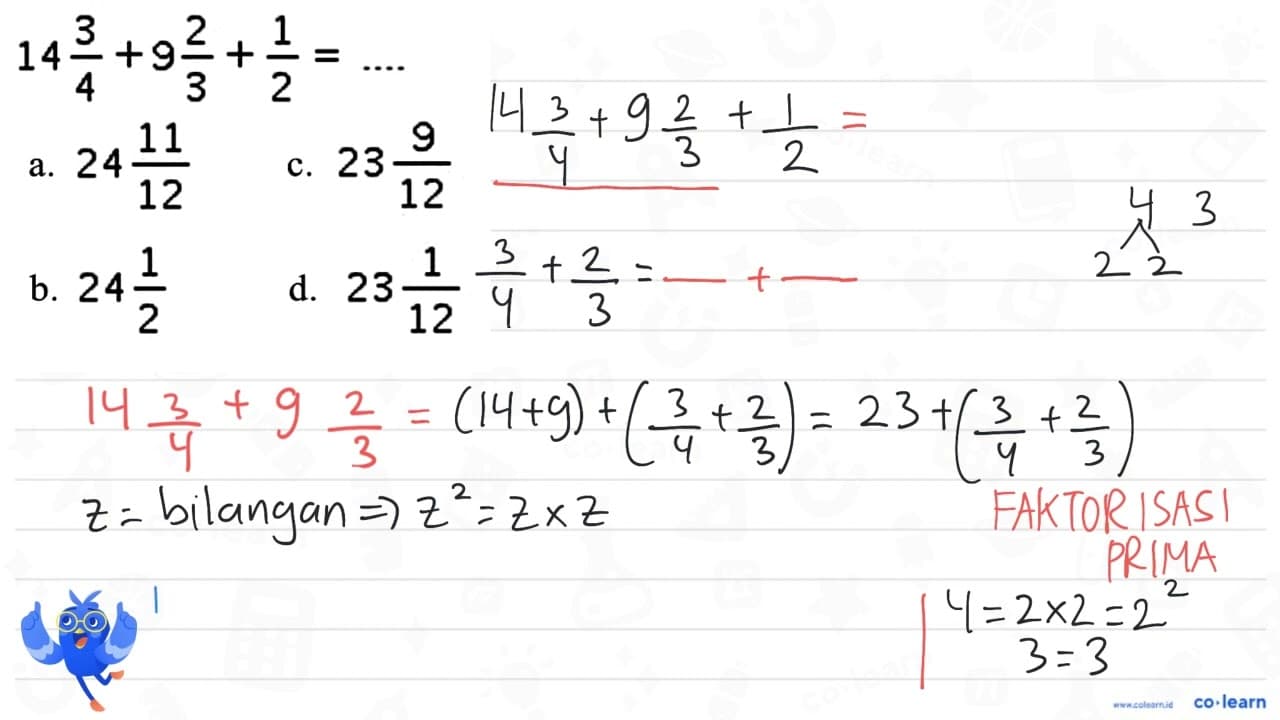 14 3/4 + 9 2/3 + 1/2 = ....
a. 24 11/12 c. 23 9/12
b. 24 1/2 d. 23 1/12
14 3/4 + 9 2/3 + 1/2 =
3/4 + 2/3 = — + —
4 3
2 2
14 3/4 + 9 2/3 = (14+9) + (3/4 + 2/3) = 23 + (3/4 + 2/3)
z = bilangan => z² = z x z
FAKTORISASI
PRIMA
4 = 2 x 2 = 2²
3 = 3
www.colearn.id co·learn